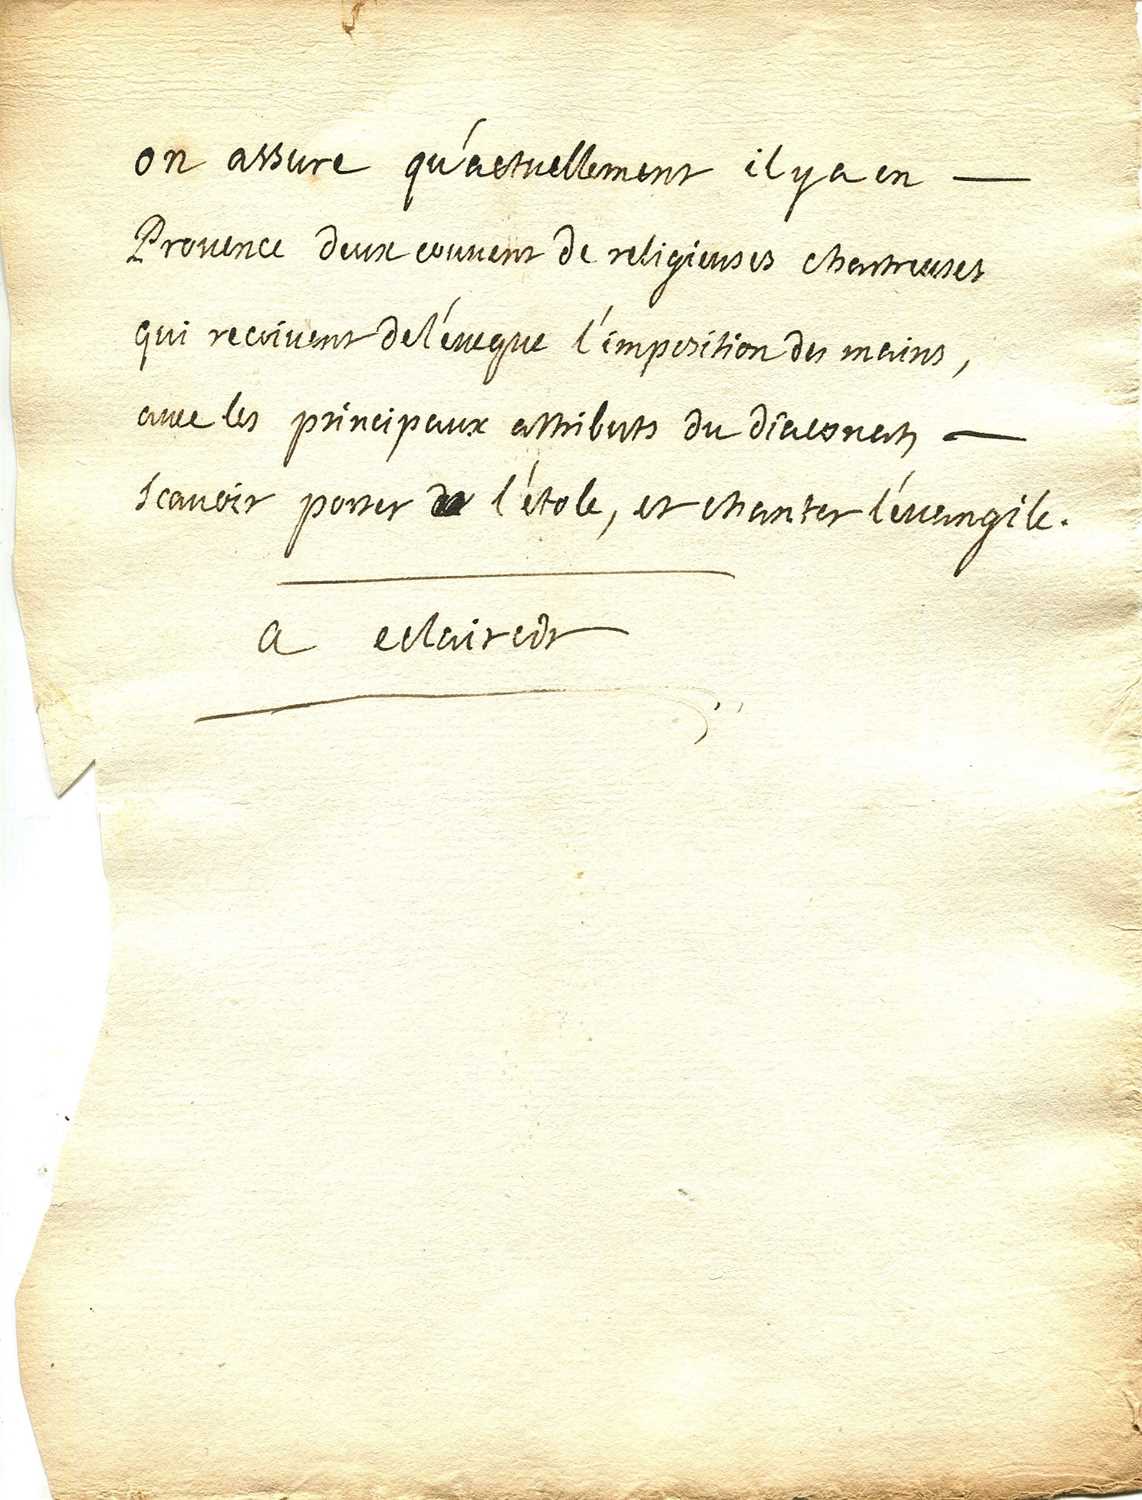 on assure qu'actuellement il y a en —
Provence deux couvent de religieuses chartreuses
qui recoivent de l'éveque l'imposition des mains,
avec les principaux attributs du diaconat, —
scavoir porter l'étole, et chanter l'évangile.
a eclaircir